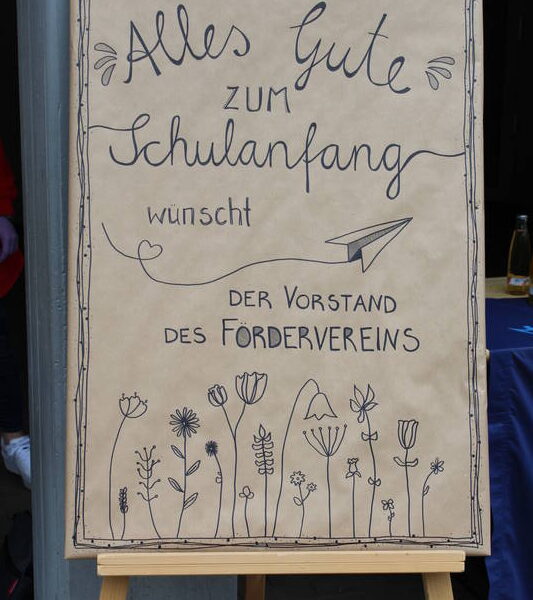 Alles Gute
zum
Schulanfang
wünscht
DER VORSTAND
DES FÖRDERVEREINS